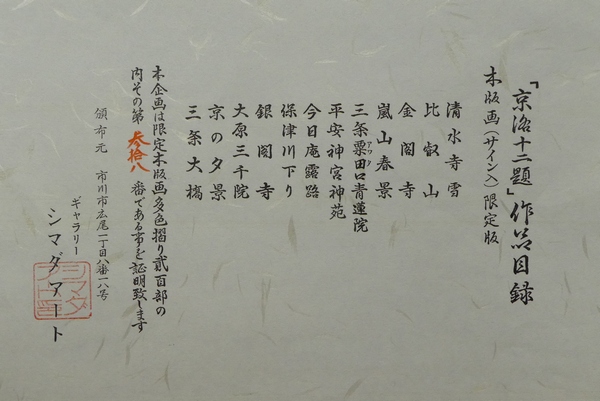 「京洛十二題」作品目録
木版画(サイン入)限定版
清水寺雪
比叡山
金閣寺
嵐山春景
三条粟田口青蓮院
アワタ
平安神宮神苑
今日庵露路
保津川下り
銀閣寺
大原三千院
京の夕景
三条大橋
本企画は限定木版画多色摺り貳百部の
内その第 参拾八 番である事を証明致します
頒布元 市川市広尾一丁目八番一八号
ギャラリー
シマダアート